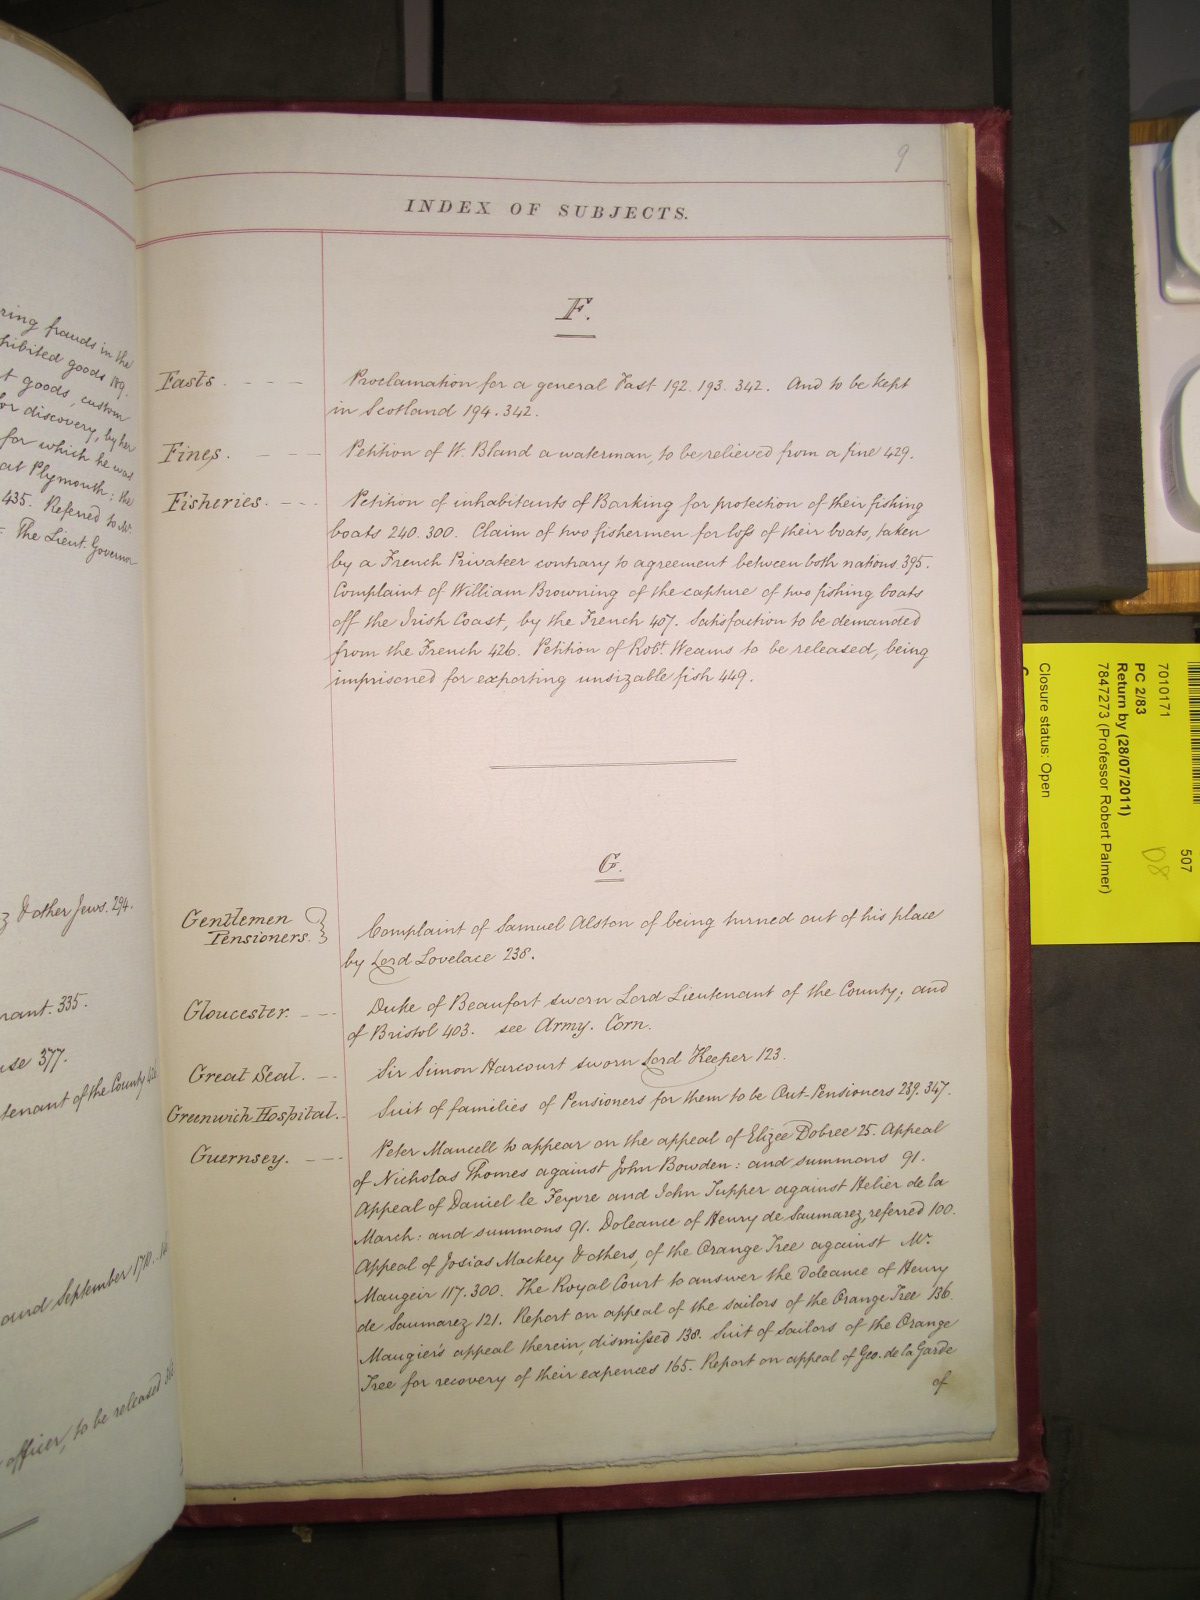 9
INDEX OF SUBJECTS.
F.
Fasts. - - - Proclamation for a general Fast 192. 193. 342. And to be kept
in Scotland 194. 342.
Fines. - - - Petition of W. Bland a waterman, to be relieved from a fine 429.
Fisheries. - - - Petition of inhabitants of Barking for protection of their fishing
boats 240. 300. Claim of two fishermen for loss of their boats, taken
by a French Privateer contrary to agreement between both nations 395.
Complaint of William Browning of the capture of two fishing boats
off the Irish Coast, by the French 407. Satisfaction to be demanded
from the French 426. Petition of Robt. Weams to be released, being
imprisoned for exporting unsizable fish 449.
G.
Gentlemen
Pensioners. } Complaint of Samuel Alston of being turned out of his place
by Lord Lovelace 238.
Gloucester. - - - Duke of Beaufort sworn Lord Lieutenant of the County; and
of Bristol 403. see Army. Corn.
Great Seal. - - Sir Simon Harcourt sworn Lord Keeper 123.
Greenwich Hospital. - Suit of families of Pensioners for them to be Out-Pensioners 239. 347.
Guernsey. - - - Peter Mancell to appear on the appeal of Elizee Dobree 25. Appeal
of Nicholas Thomes against John Bowden: and summons 91.
Appeal of Daniel le Feyvre and John Tupper against Helier de la
March: and summons 91. Doleance of Henry de Saumarez, referred 100.
Appeal of Josias Mackey & others, of the Orange Tree against Mr.
Maugeir 117. 300. The Royal Court to answer the Doleance of Henry
de Saumarez 121. Report on appeal of the sailors of the Orange Tree 136.
Maugier's appeal therein, dismissed 138. Suit of Sailors of the Orange
Tree for recovery of their expences 165. Report on appeal of Geo. de la Garde
of
ring frauds in the
hibited goods 189.
t goods, custom
for discovery, by her
for which he was
at Plymouth: the
435. Referred to Mr.
The Lieut. Governor
& other Jews. 294.
rant. 335.
use 377.
tenant of the County
and September 1710.
officer, to be released
507
7010171
PC 2/83
Return by (28/07/2011)
7847273 (Professor Robert Palmer)
Closure status: Open
D8